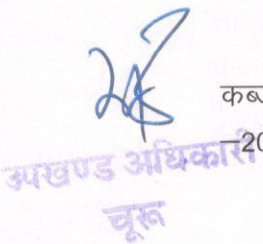 कब्ज
–20
उपखण्ड अधिकारी
चूरू